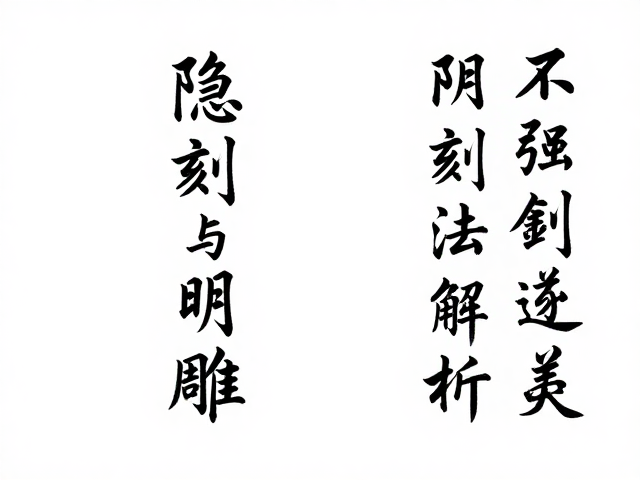 不强釗遂美
阴刻法解析
隐刻与明雕